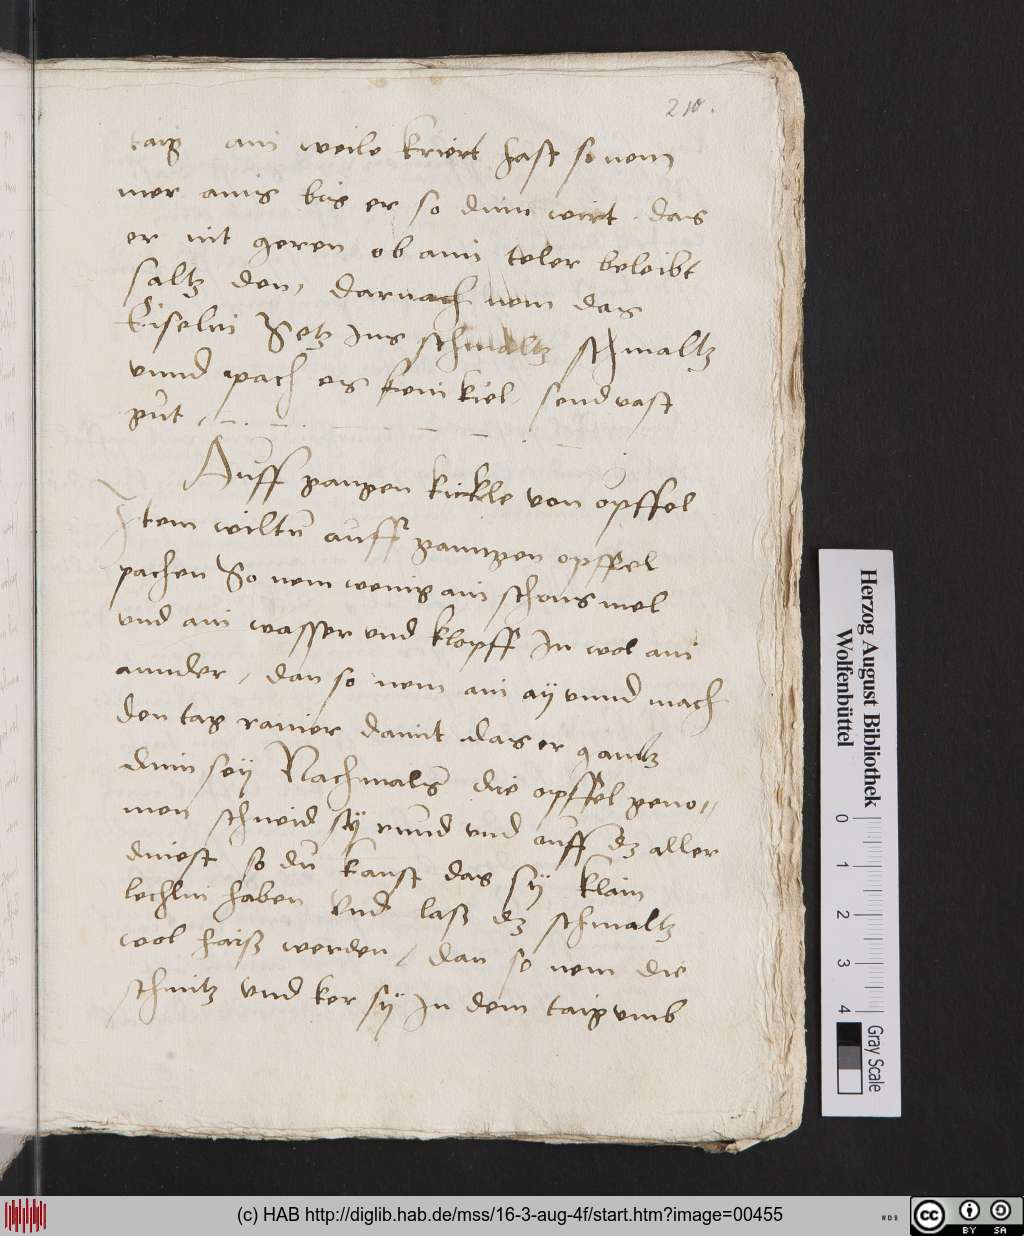 210.
taig ain weile kriert hast so nem
mer airis bis er so dinn wirt das
er nit geren ob ain teler beleibt
saltz den, darnach nem das
Eiselin Setz Ins schmaltz schmaltz
vnnd pach es fein kiel send vast
gut
Auff gangen kiechle von opffel
Item wiltu auff gangen opffel
pachen So nem wenig ain schons mel
vnd ain wasser vnd klopff In wol ain
annder, dan so nem ain ay vnnd mach
den taig damit das er gantz
dinn sey Nachmals die opffel geno„
men schneid sy rund vnd auff dz aller
diniest so du kanst das sy klain
lechlin haben Vnd laß dz schmaltz
wol haiß werden, dan so nem die
schnitz vnd ker sy In dem taig vmb
Herzog August Bibliothek
Wolfenbüttel
0 1 2 3 4
Gray Scale
(c) HAB http://diglib.hab.de/mss/16-3-aug-4f/start.htm?image=00455
WDB
cc BY SA